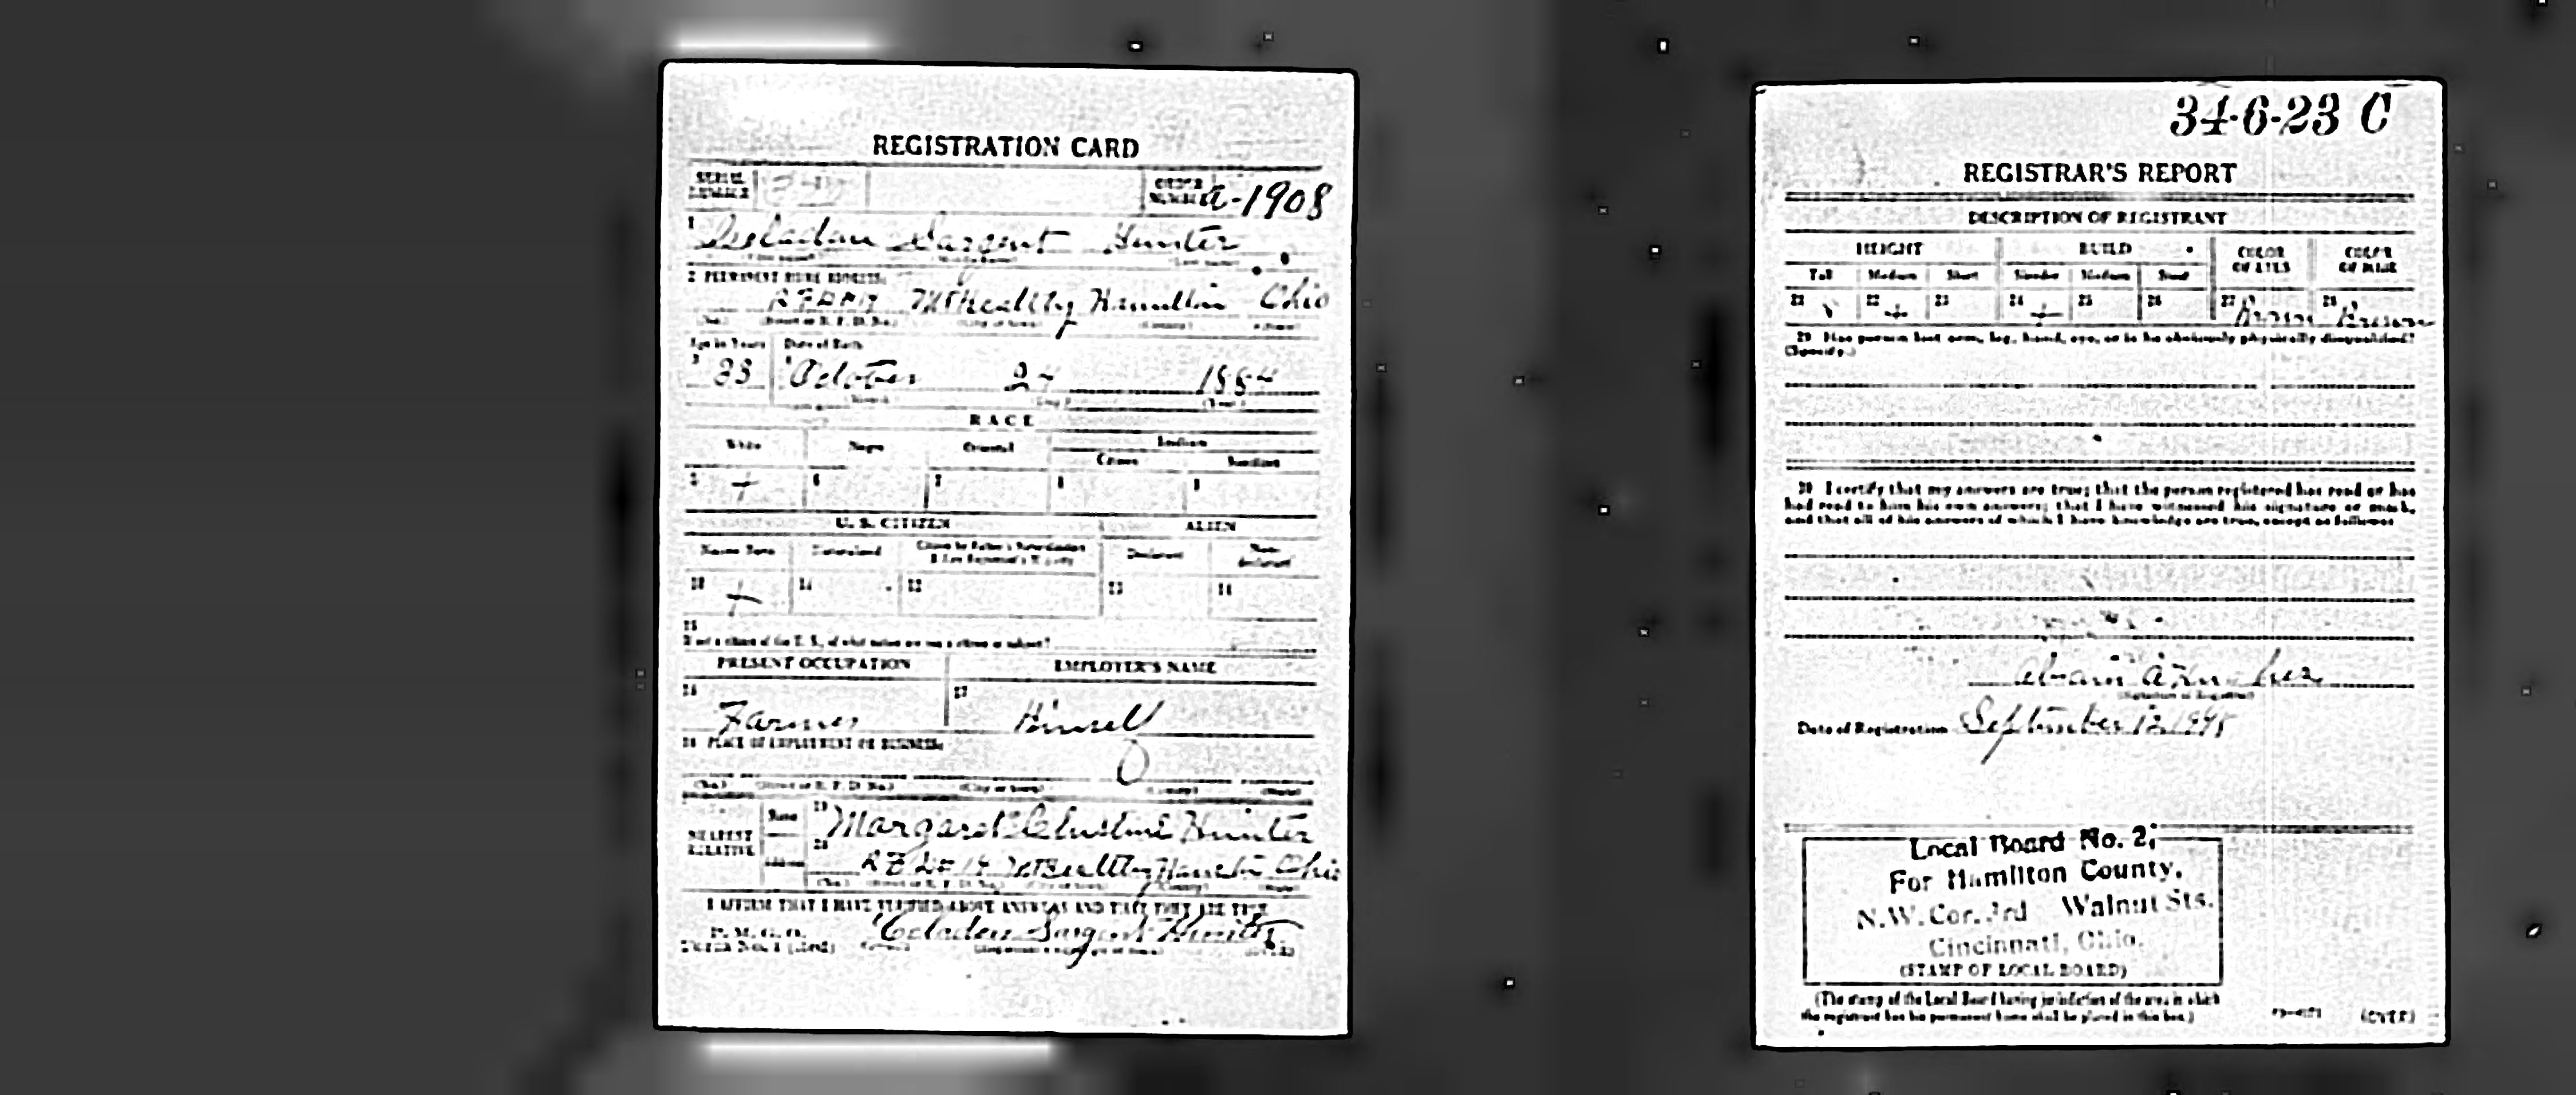 REGISTRATION CARD
SERIAL NUMBER ORDER NUMBER a-1908
1 Celadon Sargent Hunter
(First name) (Middle name) (Last name)
2 PERMANENT HOME ADDRESS:
Mt Healthy Hamilton Ohio
(No.) (Street or R. F. D. No.) (City or town) (County) (State)
Age in Years Date of Birth
3 33 4 October 24 1884
(Month.) (Day.) (Year.)
RACE
White Negro Oriental Indian
Citizen Noncitizen
5 + 6 7 8 9
U. S. CITIZEN ALIEN
Native Born Naturalized Citizen by Father's Naturalization Before Registrant's Majority Declarant Non-declarant
10 + 11 12 13 14
15
If not a citizen of the U. S., of what nation are you a citizen or subject?
PRESENT OCCUPATION EMPLOYER'S NAME
16 Farmer 17 Himself
18 PLACE OF EMPLOYMENT OR BUSINESS:
(No.) (Street or R. F. D. No.) (City or town) (County) (State)
NEAREST RELATIVE Name 19 Margaret Christine Hunter
Address 20 Mt Healthy Hamilton Ohio
(No.) (Street or R. F. D. No.) (City or town) (County) (State)
I AFFIRM THAT I HAVE VERIFIED ABOVE ANSWERS AND THAT THEY ARE TRUE
P. M. G. O.
Form No. 1 (Red) Celadon Sargent Hunter
34-6-23 C
REGISTRAR'S REPORT
DESCRIPTION OF REGISTRANT
HEIGHT BUILD COLOR OF EYES COLOR OF HAIR
Tall Medium Short Slender Medium Stout
21 22 + 23 24 + 25 26 27 Brown 28 Brown
29 Has person lost arm, leg, hand, eye, or is he obviously physically disqualified?
(Specify.)
30 I certify that my answers are true; that the person registered has read or has
had read to him his own answers; that I have witnessed his signature or mark,
and that all of his answers of which I have knowledge are true, except as follows:
(Signature of Registrar)
Date of Registration September 12 1918
Local Board No. 2,
For Hamilton County,
N.W. Cor. 3rd Walnut Sts.
Cincinnati, Ohio.
(STAMP OF LOCAL BOARD)
(The stamp of the Local Board having jurisdiction of the area in which
the registrant has his permanent home shall be placed in this box.)
(OVER)